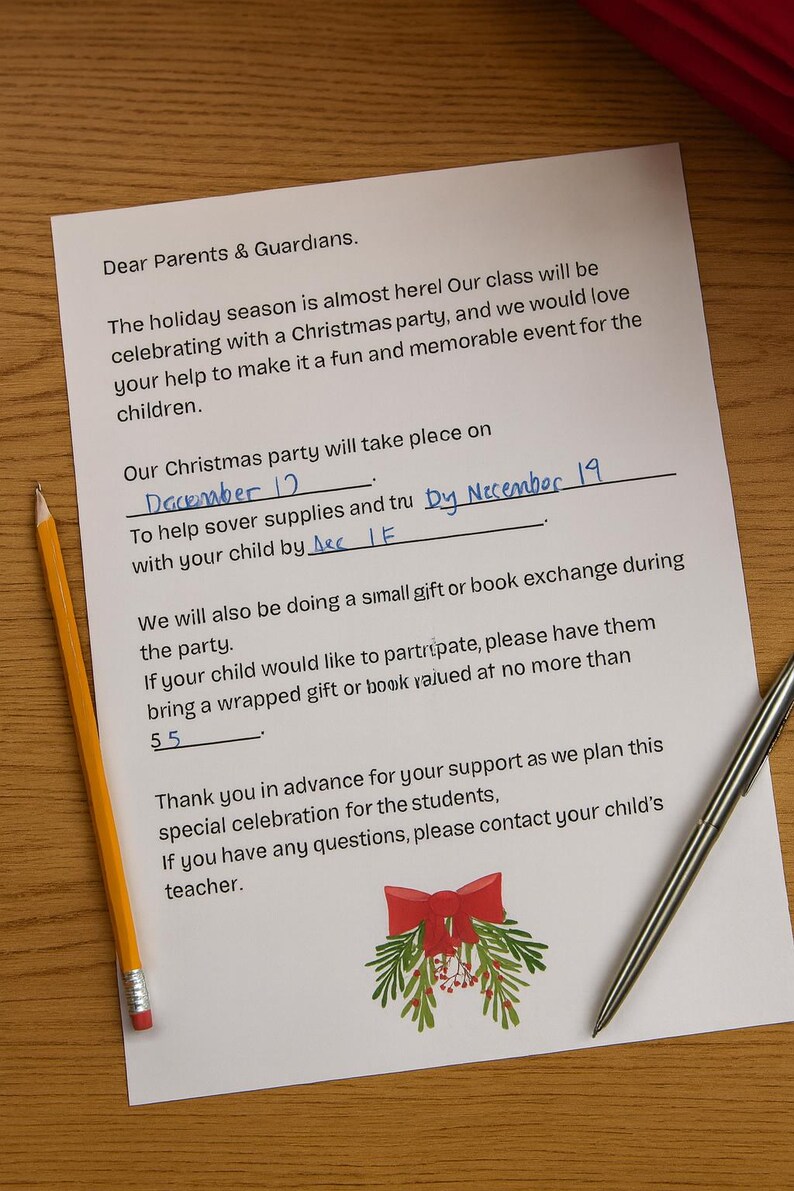 Dear Parents & Guardians.
The holiday season is almost here! Our class will be
celebrating with a Christmas party, and we would love
your help to make it a fun and memorable event for the
children.
Our Christmas party will take plece on
December
To help sover supplies and tru By December 19
with your child by Dec
We will also be doing a small gift or book exchange during
the party.
If your child would like to please have them
bring a wrapped gift or book at no more than
5 5.
Thank you in advance for your support as we plan this
special celebration for the students,
If you have any questions, please contact your child's
teacher.